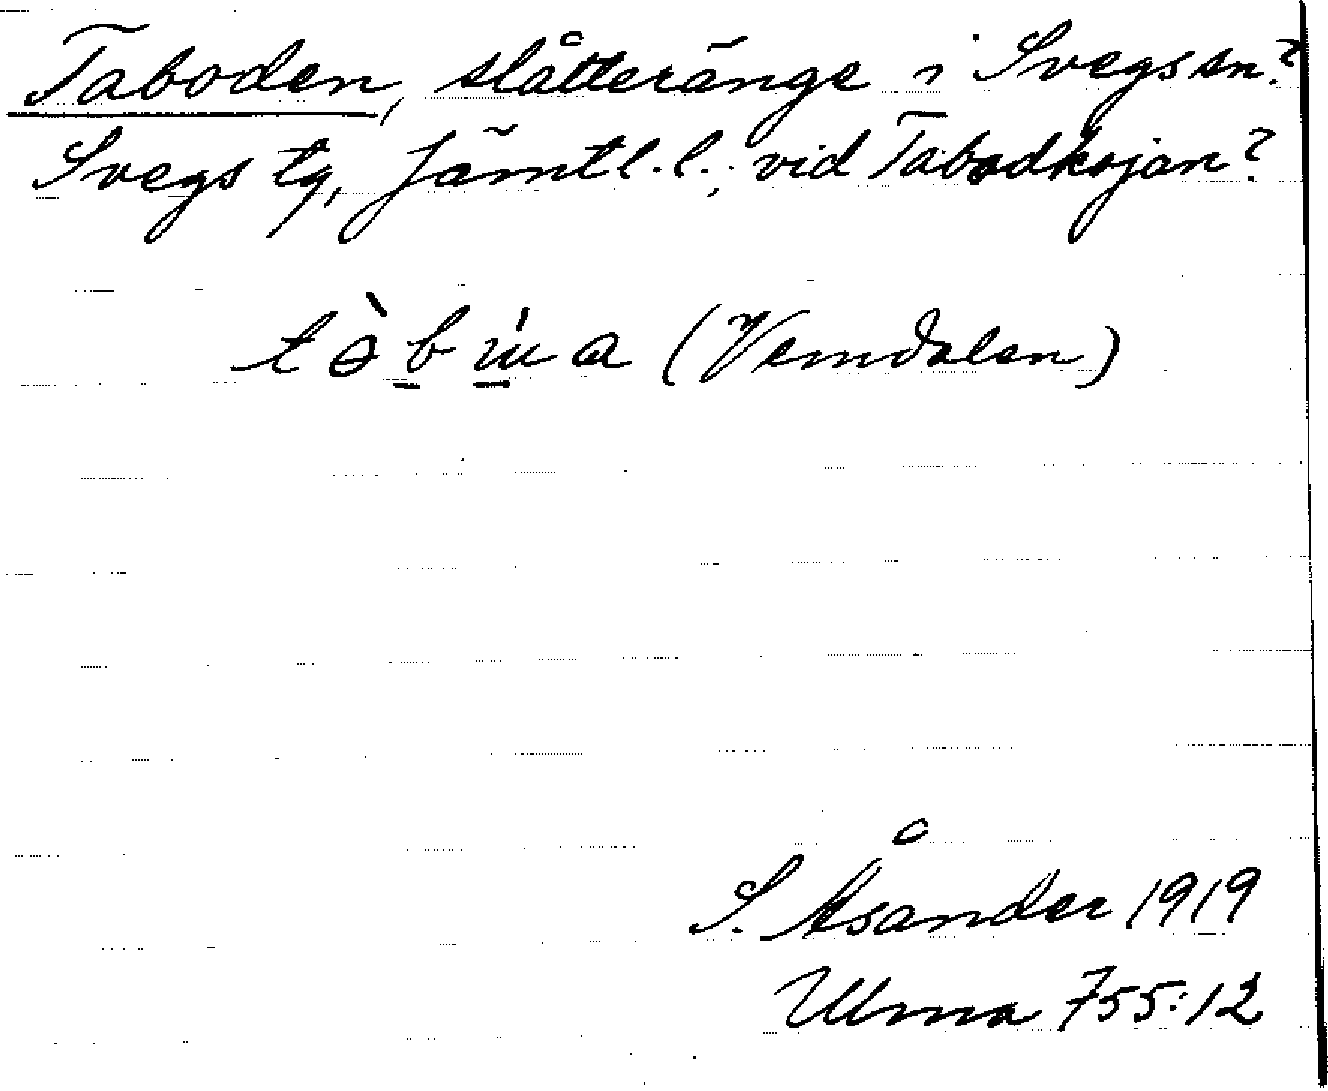 Taboden, slåtteränge i Svegs sn?
Svegs tg, Jämtl. l.; vid Tabodkojan?
(Vemdalen)
S. Åsander 1919
Ulma 755:12